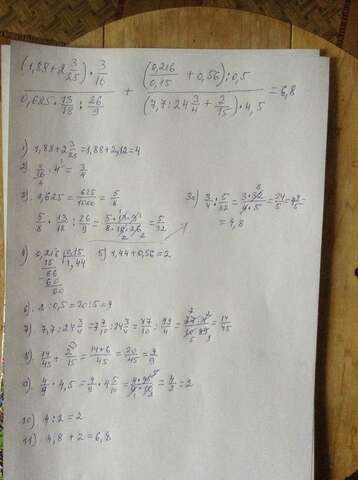 (1,88+2 3/25)·3/16 / 0,625·13/18 : 26/9 + (0,216/0,15 + 0,56):0,5 / (7,7:24 3/4 + 2/15)·4,5 = 6,8
1) 1,88+2 3/25 = 1,88+2,12=4
2) 3/16 · 4 = 3/4
3) 0,625 = 625/1000 = 5/8
5/8 · 13/18 : 26/9 = 5·13·9/8·18·26 = 5/32
3a) 3/4 : 5/32 = 3·32/4·5 = 24/5 = 4 8/10 =
= 4,8
4) 0,216 0,15
15 1,44
66
60
60
5) 1,44+0,56=2
6) 2:0,5=20:5=4
7) 7,7:24 3/4 = 77/10 : 24 3/4 = 77/10 : 99/4 = 77·4/10·99 = 14/45
8) 14/45 + 2/15 = 14+6/45 = 20/45 = 4/9
9) 4/9 · 4,5 = 4/9 · 4 5/10 = 4·45/9·10 = 4/2 = 2
10) 4:2=2
11) 4,8+2=6,8